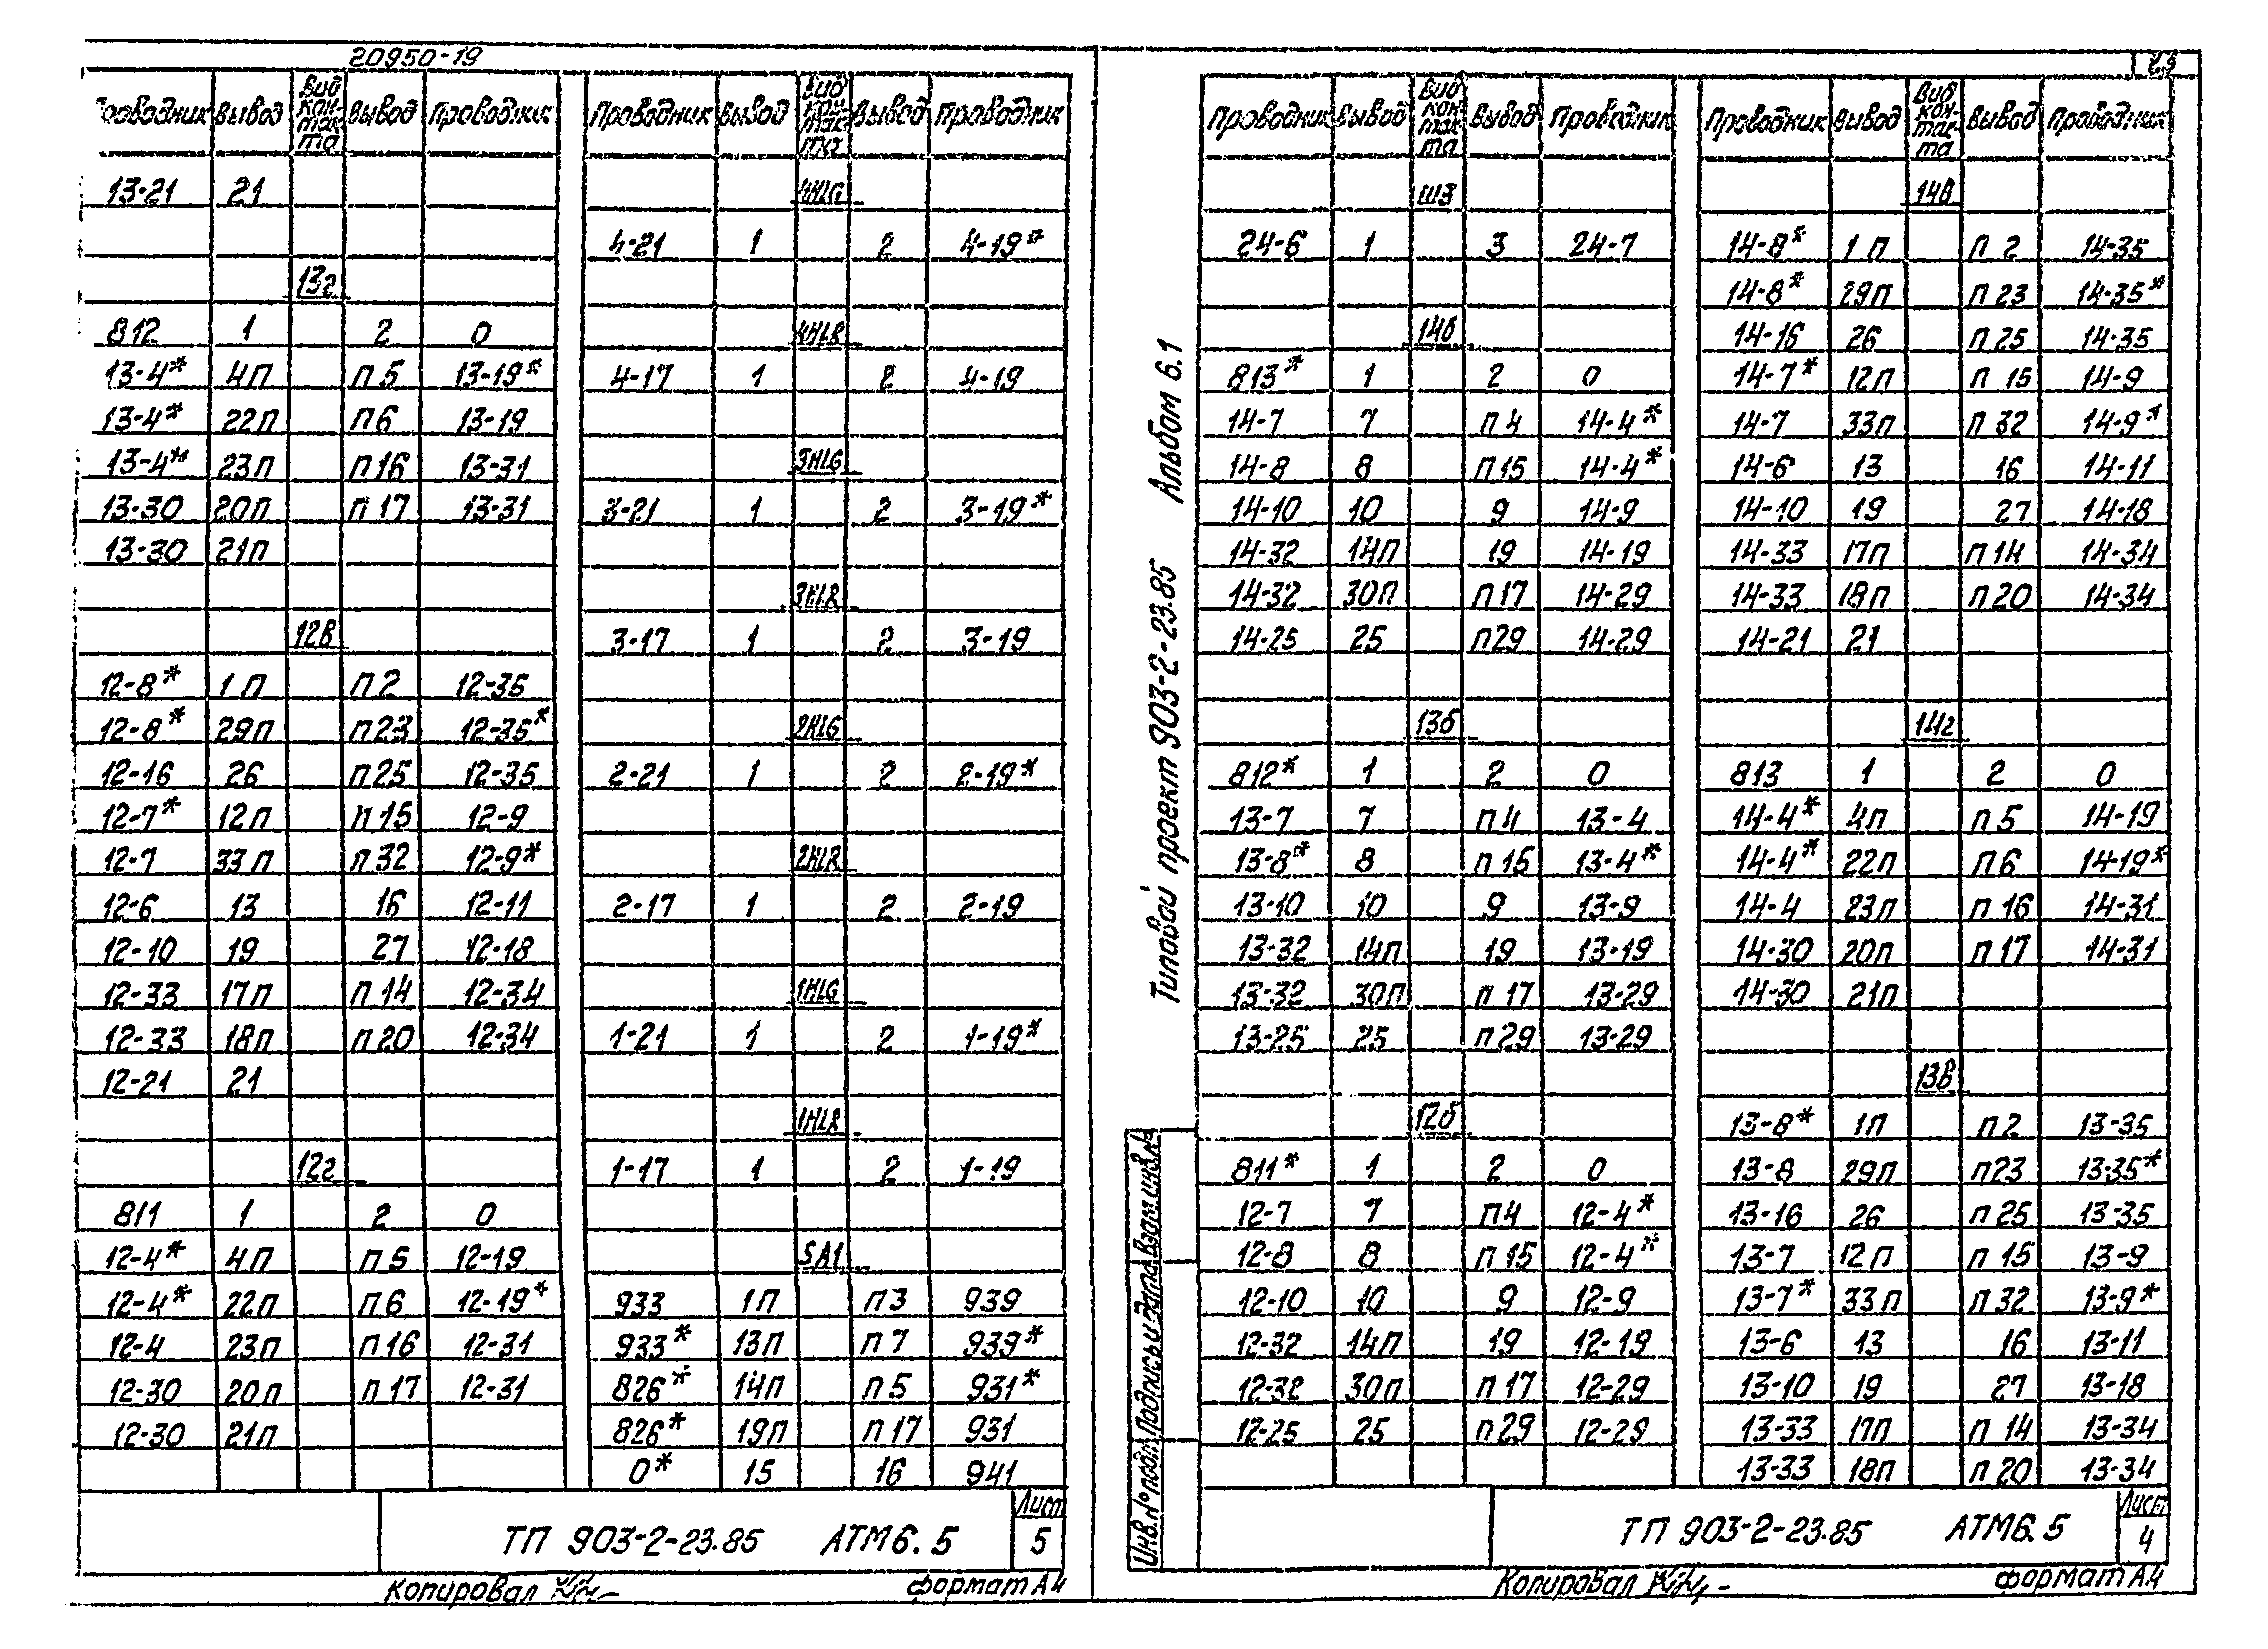 20950-19
Проводник Вывод Вид контакта Вывод Проводник
13-21 21
13г
812 1 2 0
13-4* 4П П5 13-19*
13-4* 22П П6 13-19
13-4* 23П П16 13-31
13-30 20П П17 13-31
13-30 21П
12В
12-8* 1П П2 12-35
12-8* 29П П23 12-35*
12-16 26 П25 12-35
12-7* 12П П15 12-9
12-7 33П П32 12-9*
12-6 13 16 12-11
12-10 19 27 12-18
12-33 17П П14 12-34
12-33 18П П20 12-34
12-21 21
12г
811 1 2 0
12-4* 4П П5 12-19
12-4* 22П П6 12-19*
12-4 23П П16 12-31
12-30 20П П17 12-31
12-30 21П
Проводник Вывод Вид контакта Вывод Проводник
4HLG
4-21 1 2 4-19*
4HLR
4-17 1 2 4-19
3HLG
3-21 1 2 3-19*
3HLR
3-17 1 2 3-19
2HLG
2-21 1 2 2-19*
2HLR
2-17 1 2 2-19
1HLG
1-21 1 2 1-19*
1HLR
1-17 1 2 1-19
SA1
933 1П П3 939
933* 13П П7 939*
826* 14П П5 931*
826* 19П П17 931
0* 15 16 941
ТП 903-2-23.85 АТМ6.5
Лист
5
Копировал
формат А4
Альбом 6.1
Типовой проект 903-2-23.85
Проводник Вывод Вид контакта Вывод Проводник
Ш3
24-6 1 3 24-7
14б
813* 1 2 0
14-7 7 П4 14-4*
14-8 8 П15 14-4*
14-10 10 9 14-9
14-32 14П 19 14-19
14-32 30П П17 14-29
14-25 25 П29 14-29
13б
812* 1 2 0
13-7 7 П4 13-4
13-8* 8 П15 13-4*
13-10 10 9 13-9
13-32 14П 19 13-19
13-32 30П П17 13-29
13-25 25 П29 13-29
12б
811* 1 2 0
12-7 7 П4 12-4*
12-8 8 П15 12-4*
12-10 10 9 12-9
12-32 14П 19 12-19
12-32 30П П17 12-29
12-25 25 П29 12-29
Проводник Вывод Вид контакта Вывод Проводник
14В
14-8* 1П П2 14-35
14-8* 29П П23 14-35*
14-16 26 П25 14-35
14-7* 12П П15 14-9
14-7 33П П32 14-9*
14-6 13 16 14-11
14-10 19 27 14-18
14-33 17П П14 14-34
14-33 18П П20 14-34
14-21 21
14г
813 1 2 0
14-4* 4П П5 14-19
14-4* 22П П6 14-19*
14-4 23П П16 14-31
14-30 20П П17 14-31
14-30 21П
13В
13-8* 1П П2 13-35
13-8 29П П23 13-35*
13-16 26 П25 13-35
13-7 12П П15 13-9
13-7* 33П П32 13-9*
13-6 13 16 13-11
13-10 19 27 13-18
13-33 17П П14 13-34
13-33 18П П20 13-34
Инв.№подл. Подпись и дата Взам.инв.№
ТП 903-2-23.85 АТМ6.5
Лист
4
Копировал
формат А4